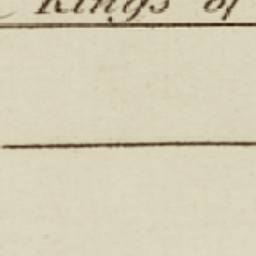 Kings of